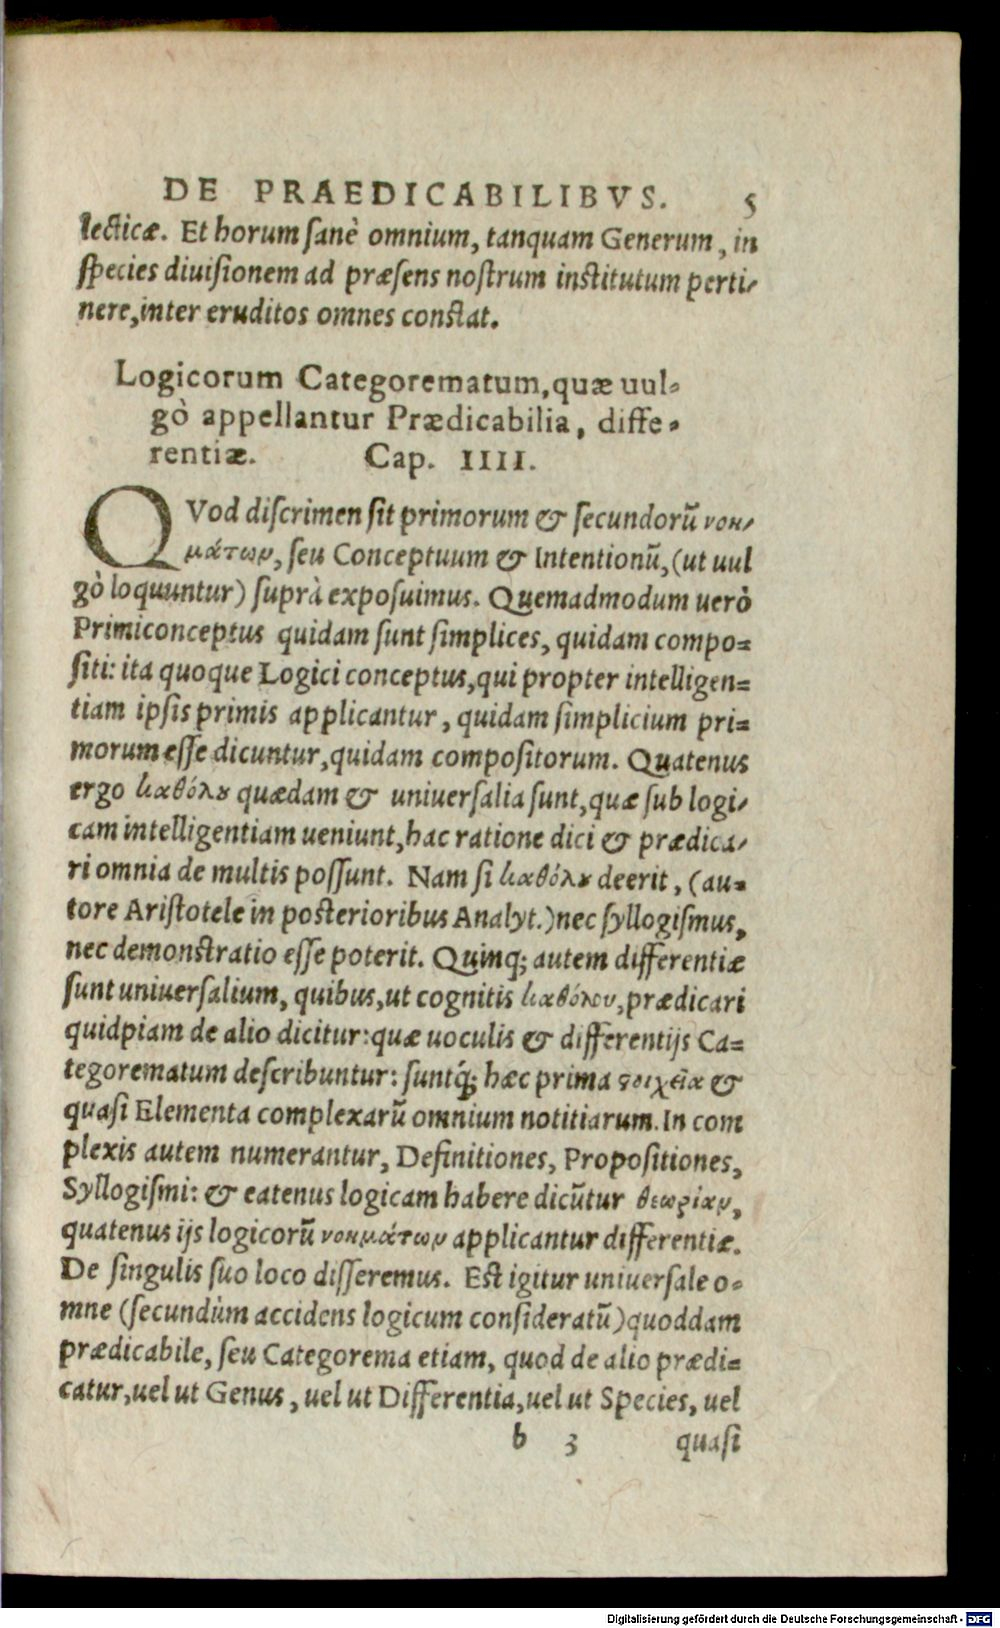 DE PRAEDICABILIBVS. 5
lecticæ. Et horum sanè omnium, tanquam Generum, in
species diuisionem ad præsens nostrum institutum perti-
nere, inter eruditos omnes constat.
Logicorum Categorematum, quæ uul-
gò appellantur Prædicabilia, diffe-
rentiæ. Cap. IIII.
QVod discrimen sit primorum & secundorũ νοη-
μάτων, seu Conceptuum & Intentionũ, (ut uul
gò loquuntur) suprà exposuimus. Quemadmodum uerò
Primiconceptus quidam sunt simplices, quidam compo-
siti: ita quoque Logici conceptus, qui propter intelligen-
tiam ipsis primis applicantur, quidam simplicium pri-
morum esse dicuntur, quidam compositorum. Quatenus
ergo καθόλȣ quædam & uniuersalia sunt, quæ sub logi-
cam intelligentiam ueniunt, hac ratione dici & prædica-
ri omnia de multis possunt. Nam si καθόλȣ deerit, (au-
tore Aristotele in posterioribus Analyt.) nec syllogismus,
nec demonstratio esse poterit. Quinq; autem differentiæ
sunt uniuersalium, quibus, ut cognitis καθόλου, prædicari
quidpiam de alio dicitur: quæ uoculis & differentijs Ca-
tegorematum describuntur: suntq́; hæc prima ϛοιχεῖα &
quasi Elementa complexarũ omnium notitiarum. In com
plexis autem numerantur, Definitiones, Propositiones,
Syllogismi: & eatenus logicam habere dicũtur θεωρίαν,
quatenus ijs logicorũ νοημάτων applicantur differentiæ.
De singulis suo loco disseremus. Est igitur uniuersale o-
mne (secundùm accidens logicum consideratũ) quoddam
prædicabile, seu Categorema etiam, quod de alio prædi-
catur, uel ut Genus, uel ut Differentia, uel ut Species, uel
b 3 quasi
Digitalisierung gefördert durch die Deutsche Forschungsgemeinschaft - DFG